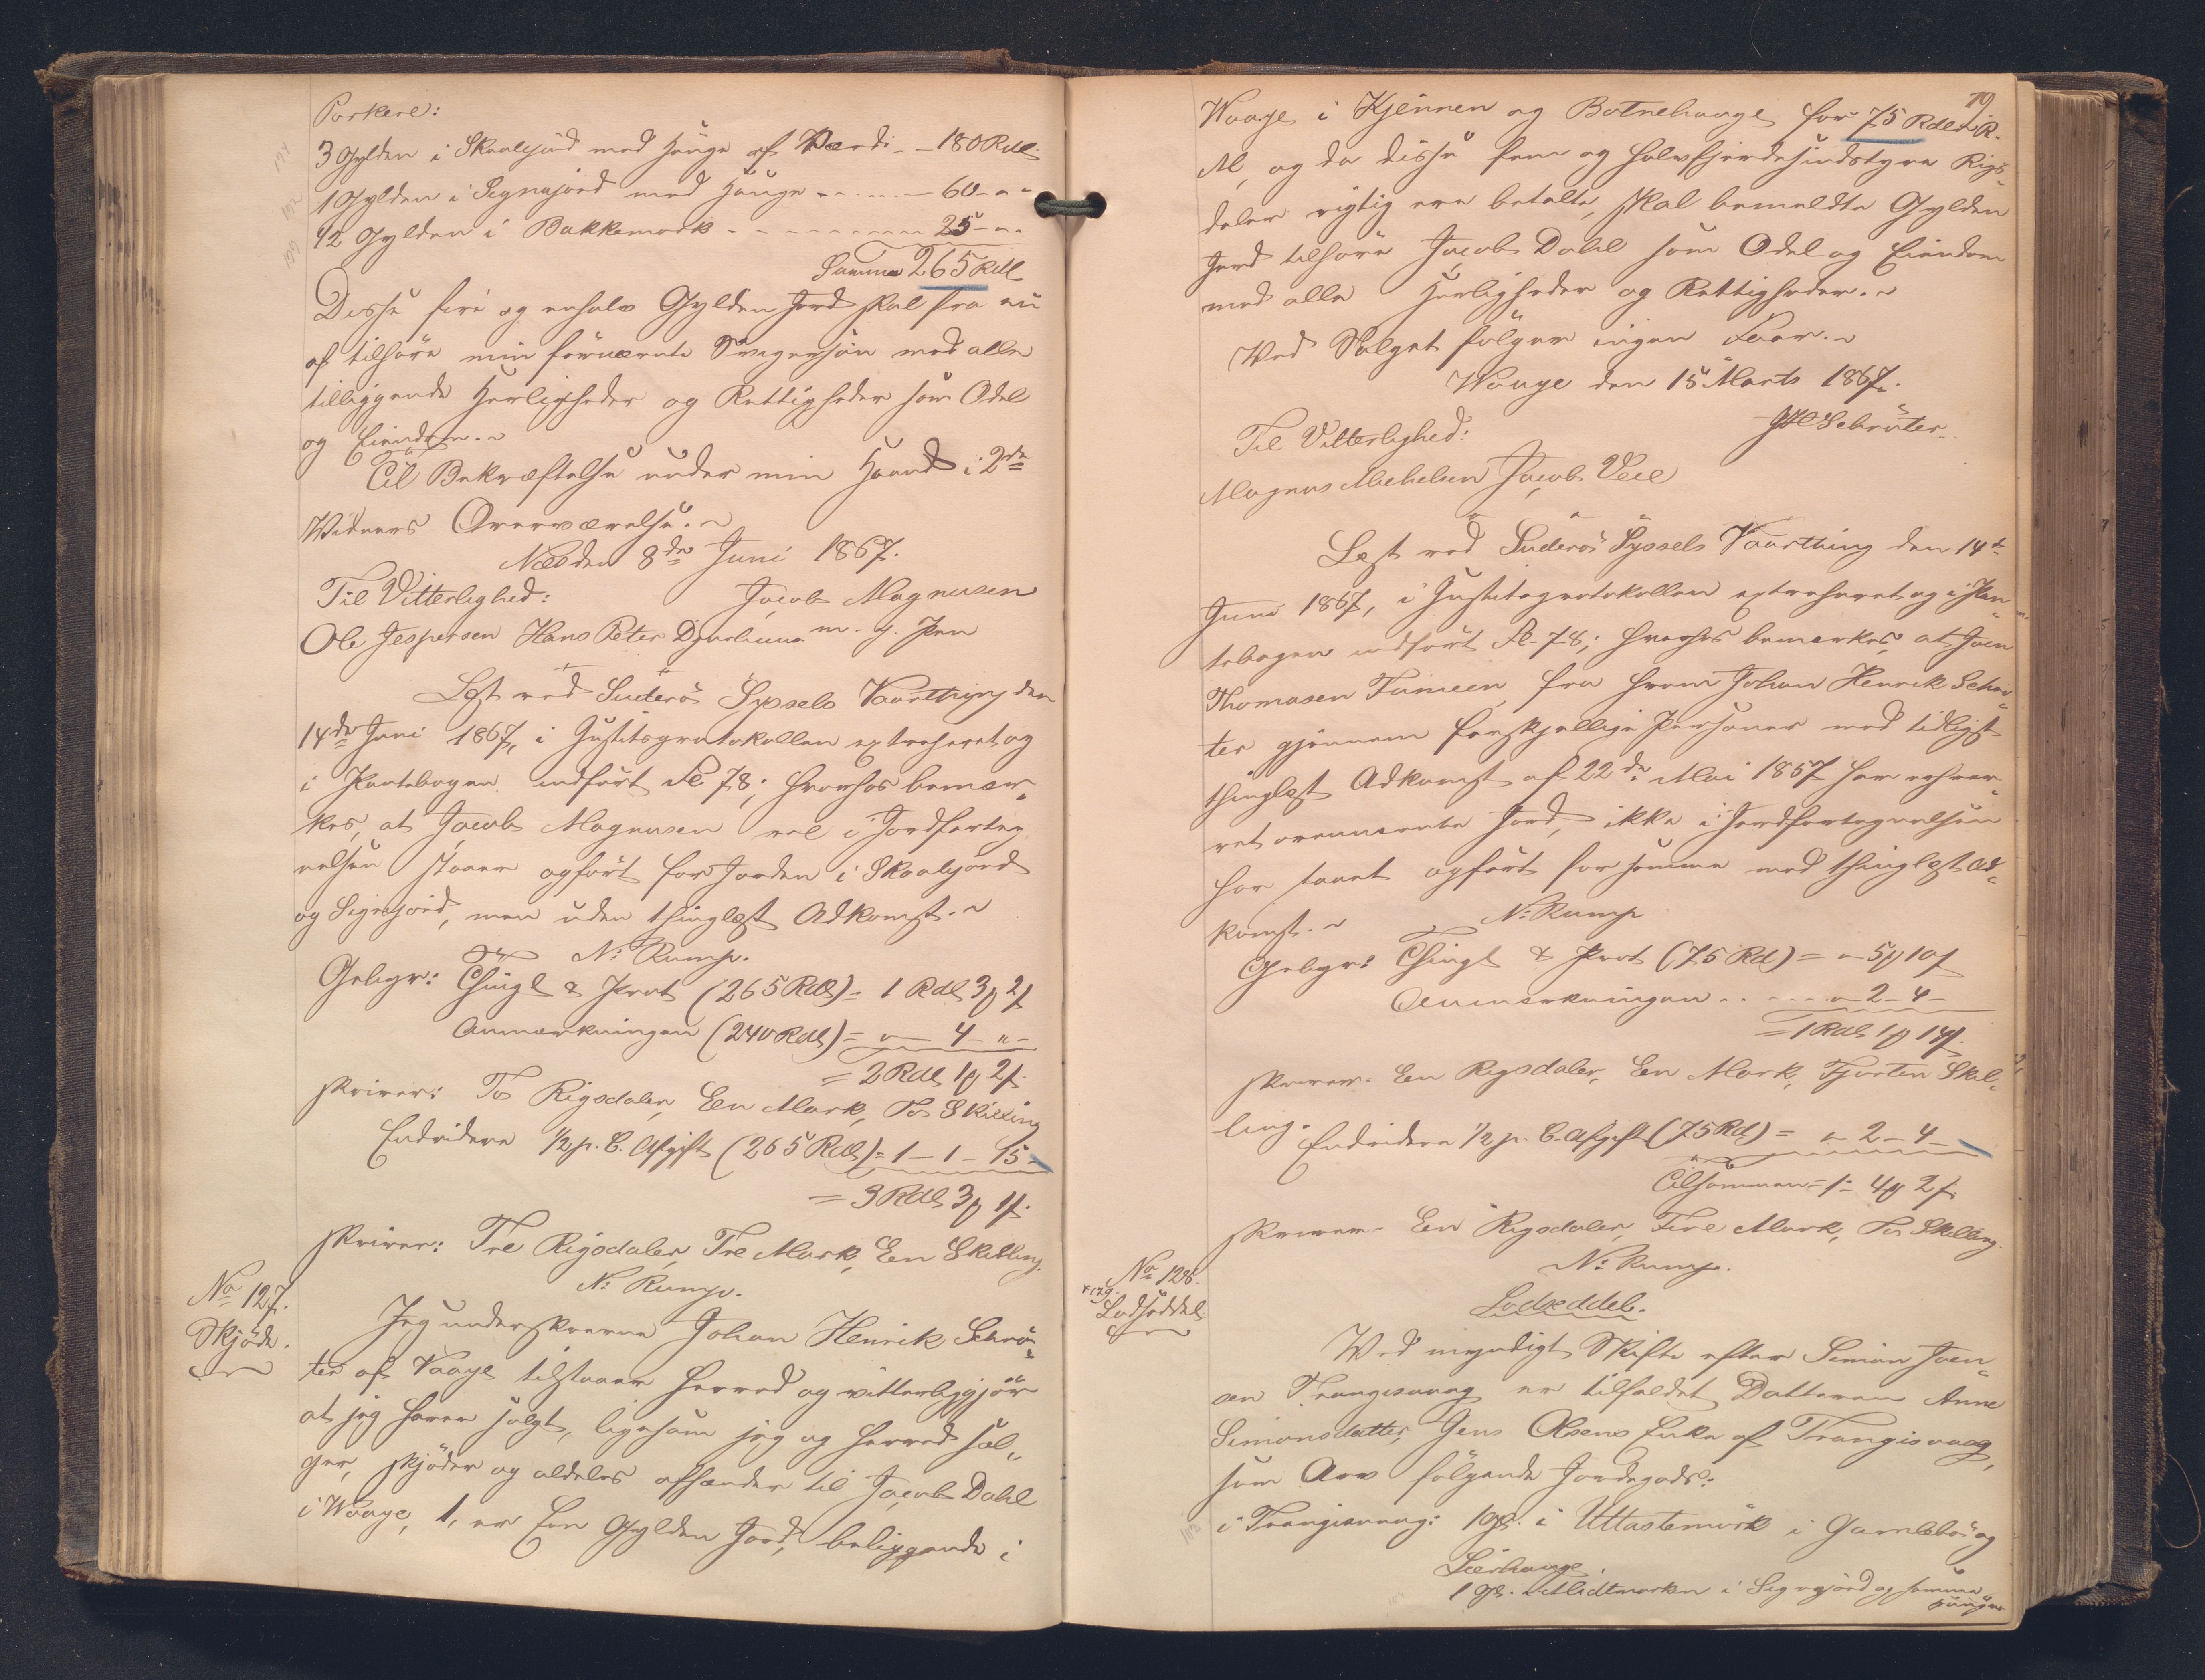 Porkere:
3 Gylden i Skaaljord med Hauge af Værdi - - 180 Rdl.
1 Gylden i Signajord med Hauge - - - - - 60 - " -
1/2 Gylden i Bakkemork - - - - - - - - 25 - " -
Summa 265 Rdl
Disse fire og enhalv Gylden Jord skal fra nu
af tilhøre min førnævnte Svigersøn med alle
tilliggende Herligheder og Rettigheder som Odel
og Eiendom. ~
Til Bekræftelse under min Haand i 2de
Vidners Overværelse. ~
Næs den 8de Juni 1867.
Til Vitterlighed: Jacob Magnusen
Ole Jespersen Hans Peter m. f. Pen
Læst ved Suderö Syssels Vaarthing den
14de Juni 1867, i Justitsprotokollen extraheret og
i Pantebogen indført Fol 78; hvorhos bemær-
kes, at Jacob Magnusen vel i Jordforteg-
nelsen staaer opført for Jorden i Skaaljord
og Signajord, men uden thinglæst Adkomst. ~
N: Rump.
Gebyr: Thingl & Prot (265 Rdl) = 1 Rdl 3 ꝟ 2 ß
Anmærkningen (240 Rdl) = " - 4 - " -
= 2 Rdl 1 ꝟ 2 ß.
skriver: To Rigsdaler, Een Mark, To Skilling
Endvidere 1/2 p. C. Afgift (265 Rdl) = 1 - 1 - 15 -
= 3 Rdl 3 ꝟ 1 ß.
skriver: Tre Rigsdaler, Tre Mark, Een Skilling.
N: Rump.
No 127.
Skjøde.
Jeg underskrevne Johan Henrik Schrö-
ter af Vaage tilstaaer herved og vitterliggjør
at jeg haver solgt, ligesom jeg og herved sæl-
ger, skjøder og aldeles afhænder til Jacob Dahl
i Waage, 1, er Een Gylden Jord, beliggende i
79
Waage i Kjennen og Botnehauge for 75 Rdl. R.
M, og da disse fem og halvfjerdsindstyve Rigs-
daler rigtig ere betalte, skal bemeldte Gylden
Jord tilhøre Jacob Dahl som Odel og Eiendom
med alle Herligheder og Rettigheder. ~
Ved Salget følger ingen Faar. ~
Waage den 15 Marts 1867.
JH Schröter
Til Vitterlighed:
Magnus Michelsen Jacob Veie
Læst ved Suderö Syssels Vaarthing den 14de
Juni 1867, i Justitsprotokollen extraheret og i Pan-
tebogen indført Fol 78; hvorhos bemærkes, at Joen
Thomasen Tumeen, fra hvem Johan Henrik Schrö-
ter gjennem forskjellige Personer med tidligst
thinglæst Adkomst af 22de Mai 1857 har erhver-
vet ovennævnte Jord, ikke i Jordfortegnelsen
har været opført for samme med thinglæst Ad-
komst. ~ N: Rump
Gebyr: Thingl & Prot (75 Rd) = " 5 ꝟ 10 ß
Anmærkningen . . - - - " 2 - 4 -
= 1 Rdl 1 ꝟ 14 ß.
skriver: Een Rigsdaler, Een Mark, Fjorten Skil-
ling.
Endvidere 1/2 p. C. Afgift (75 Rd) = " - 2 - 4 -
Tilsammen = 1 - 4 ꝟ 2 ß.
skriver. Een Rigsdaler, Fire Mark, To Skilling.
N: Rump.
No 128.
Lodseddel
Lodseddel.
Ved myndigt Skifte efter Simon Joen-
sen Trangisvaag er tilfaldet Datteren Anne
Simonsdatter, Jens Olsens Enke af Trangisvaag,
som Arv følgende Jordegods:
i Trangisvaag: 1 gl. i Uttastemörk i Gamlebø og
Lierhauge.
1 gl. Midtmarken i Signajord og samme